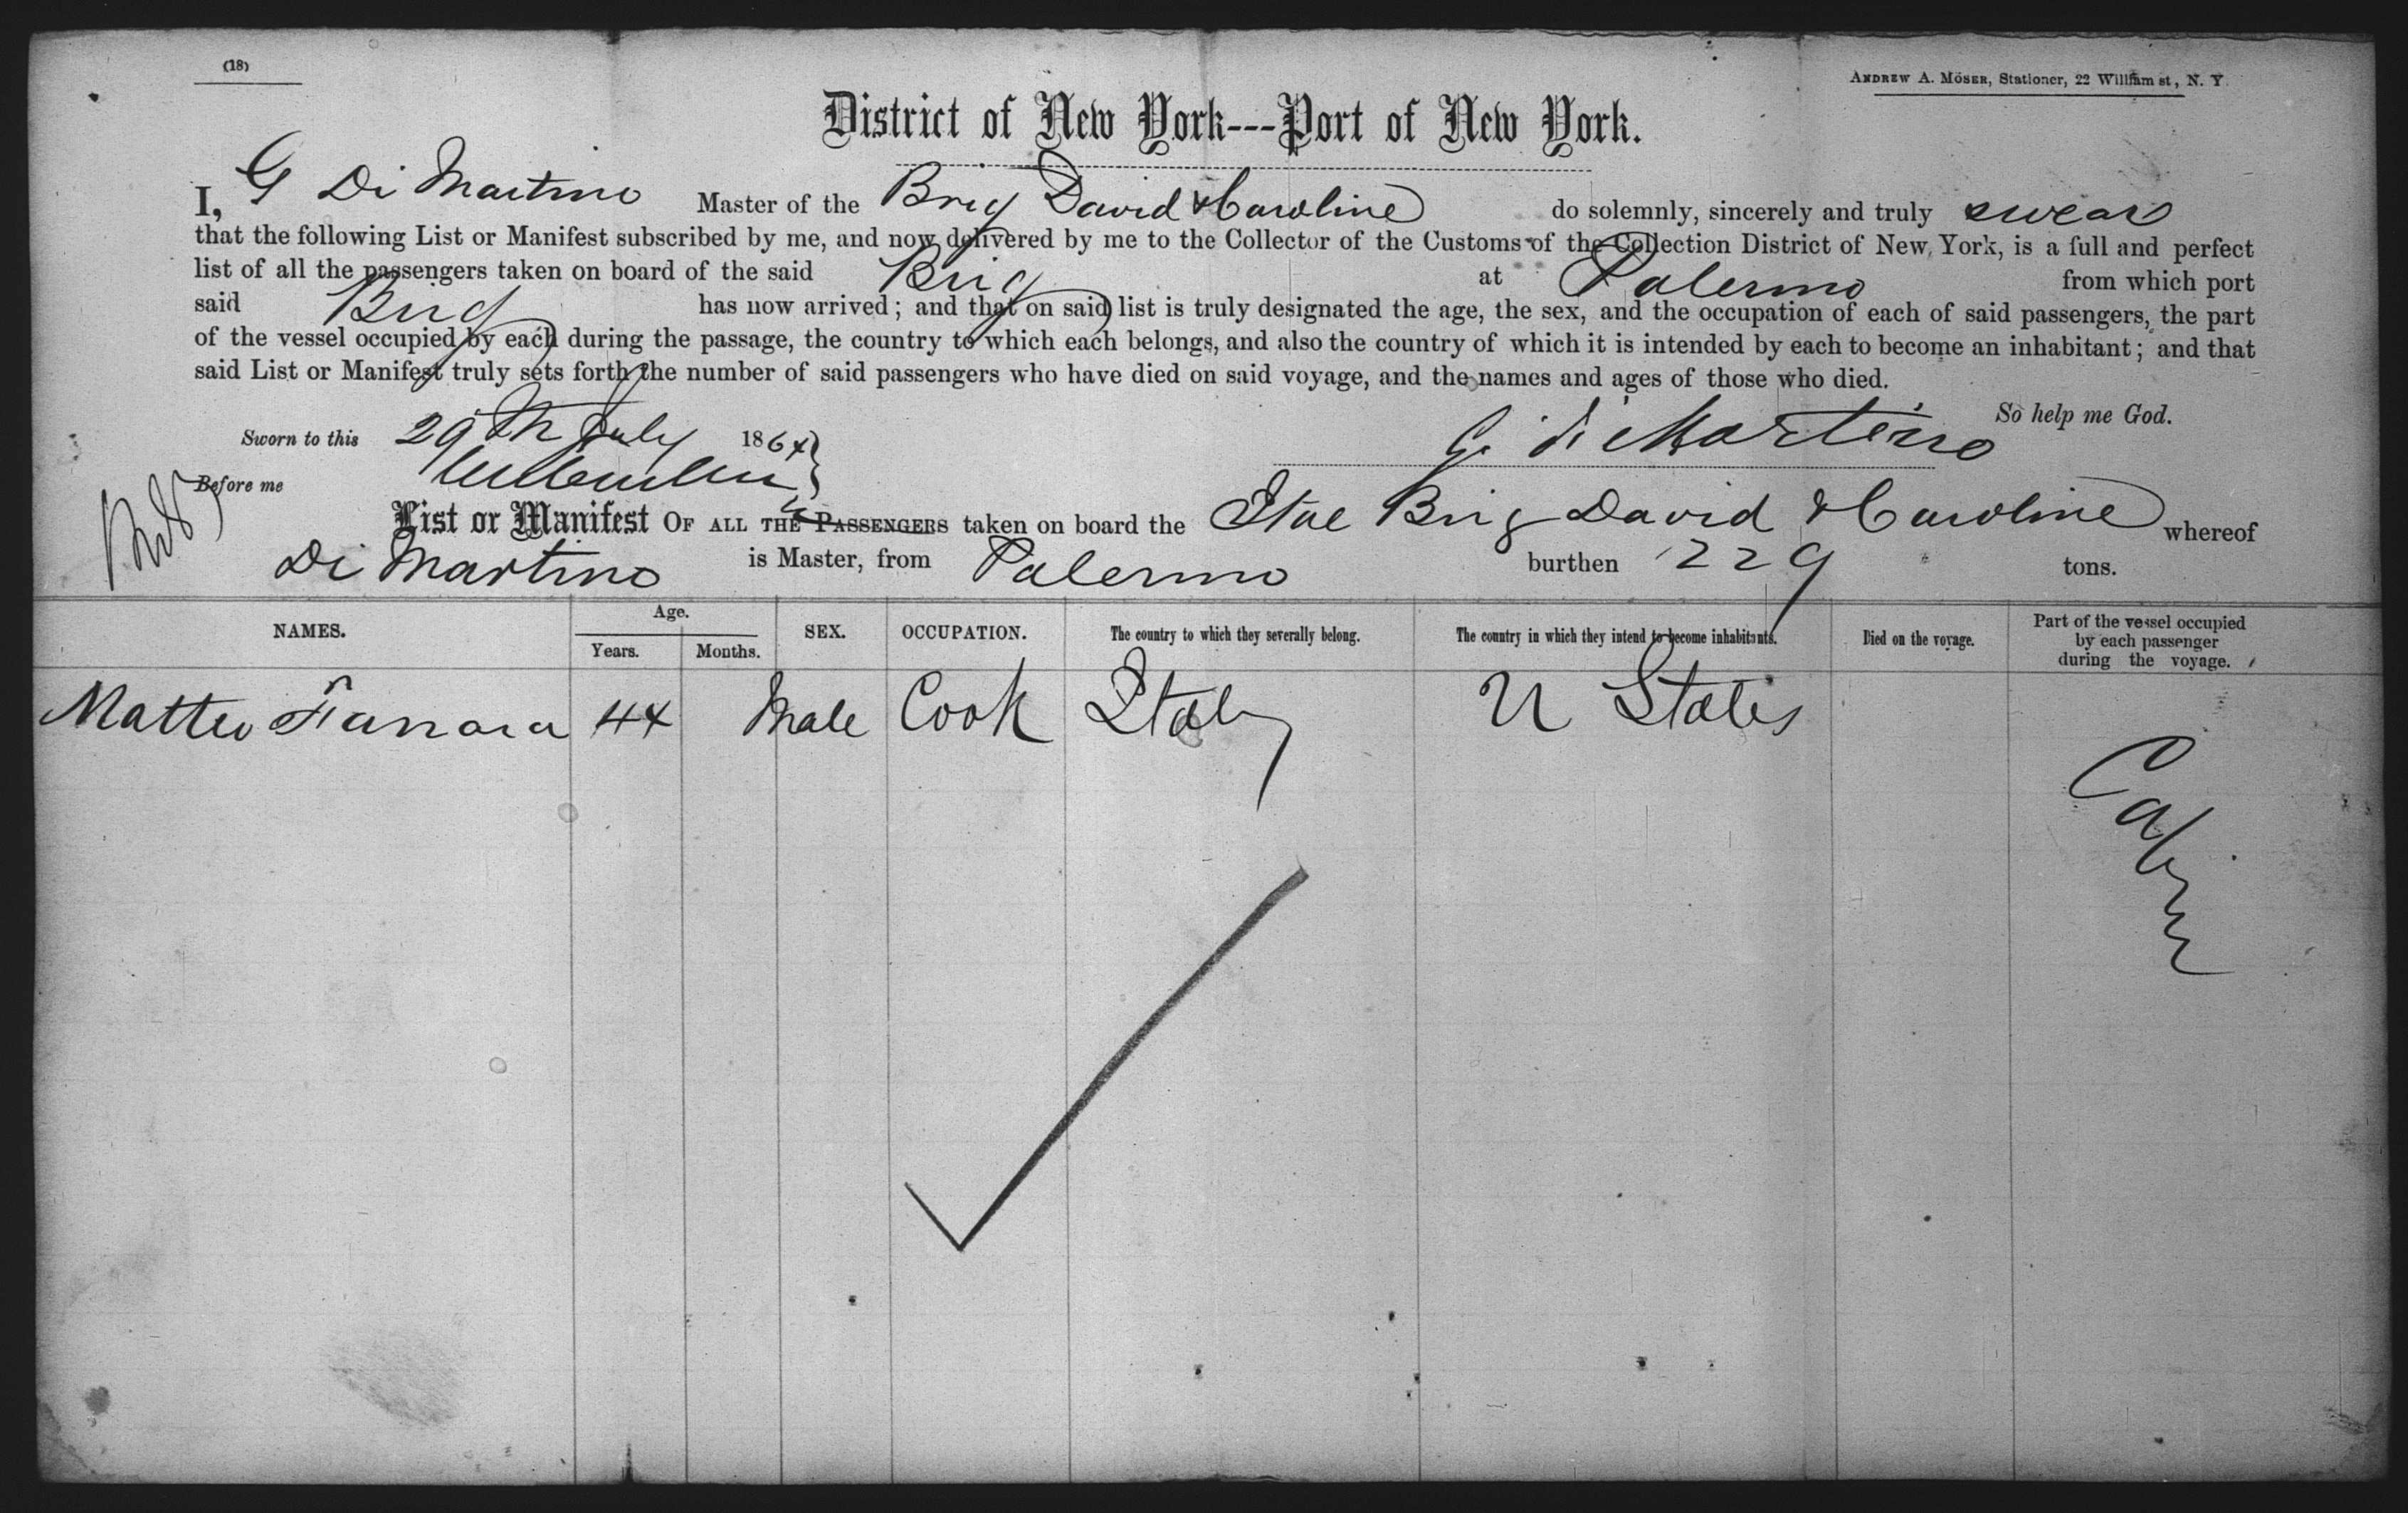 (18)
ANDREW A. MÖSER, Stationer, 22 William st, N. Y.
District of New York---Port of New York.
I, G Di Martino Master of the Brig David & Caroline do solemnly, sincerely and truly swear
that the following List or Manifest subscribed by me, and now delivered by me to the Collector of the Customs of the Collection District of New York, is a full and perfect
list of all the passengers taken on board of the said Brig at Palermo from which port
said Brig has now arrived; and that on said list is truly designated the age, the sex, and the occupation of each of said passengers, the part
of the vessel occupied by each during the passage, the country to which each belongs, and also the country of which it is intended by each to become an inhabitant; and that
said List or Manifest truly sets forth the number of said passengers who have died on said voyage, and the names and ages of those who died.
So help me God.
Sworn to this 29th July 1864 G. di Martino
Before me
List or Manifest OF ALL THE PASSENGERS taken on board the Ital Brig David & Caroline whereof
Di Martino is Master, from Palermo burthen 229 tons.
NAMES. Age. Years. Months. SEX. OCCUPATION. The country to which they severally belong. The country in which they intend to become inhabitants. Died on the voyage. Part of the vessel occupied by each passenger during the voyage.
Matteo Fanara 44 Male Cook Italy U States
Cabin